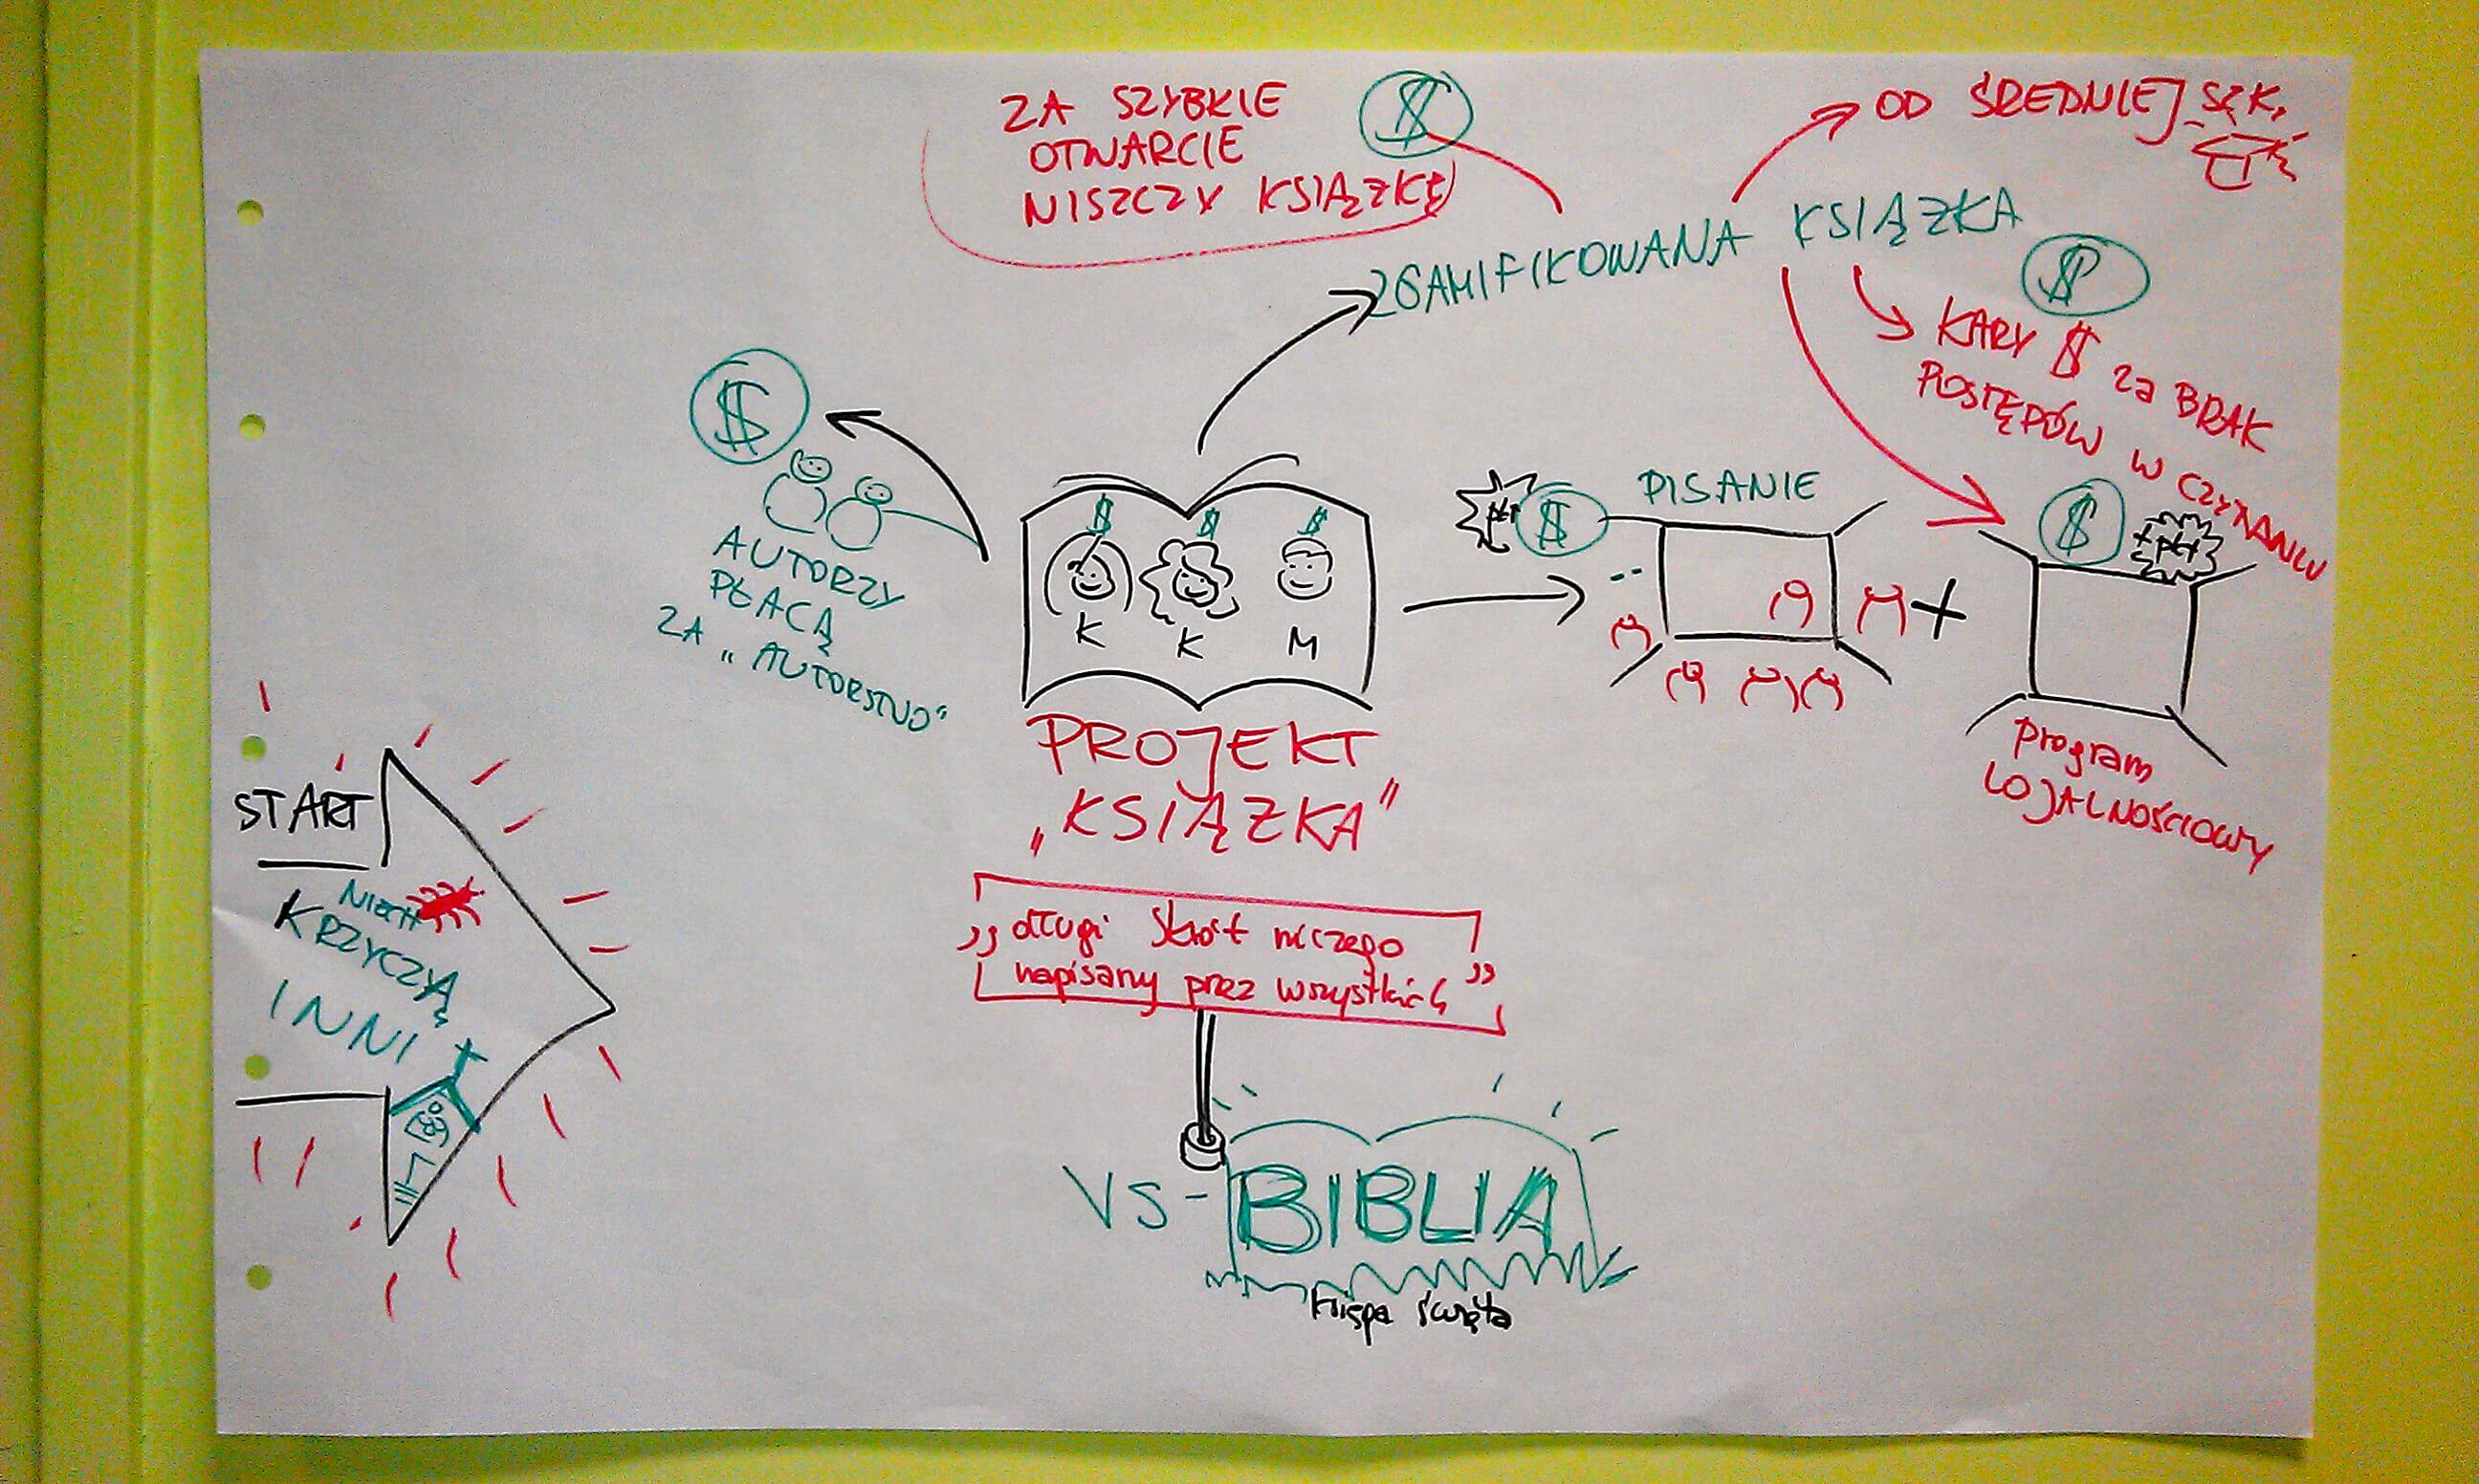 ZA SZYBKIE $
OTWARCIE
NISZCZY KSIĄŻKĘ
OD ŚREDNIEJ SZK.
ZGAMIFIKOWANA KSIĄŻKA
$
KARY $ za BRAK
POSTĘPÓW W CZYTANIU
$
AUTORZY
PŁACĄ
ZA „AUTORSTWO"
$ $ $
K K M
PROJEKT
„KSIĄŻKA"
pkt $ PISANIE
+
$ + pkt
program
LOJALNOŚCIOWY
START
NIECH
KRZYCZĄ
INNI
„długi skrót niczego
napisany przez wszystkich"
VS - BIBLIA
święta